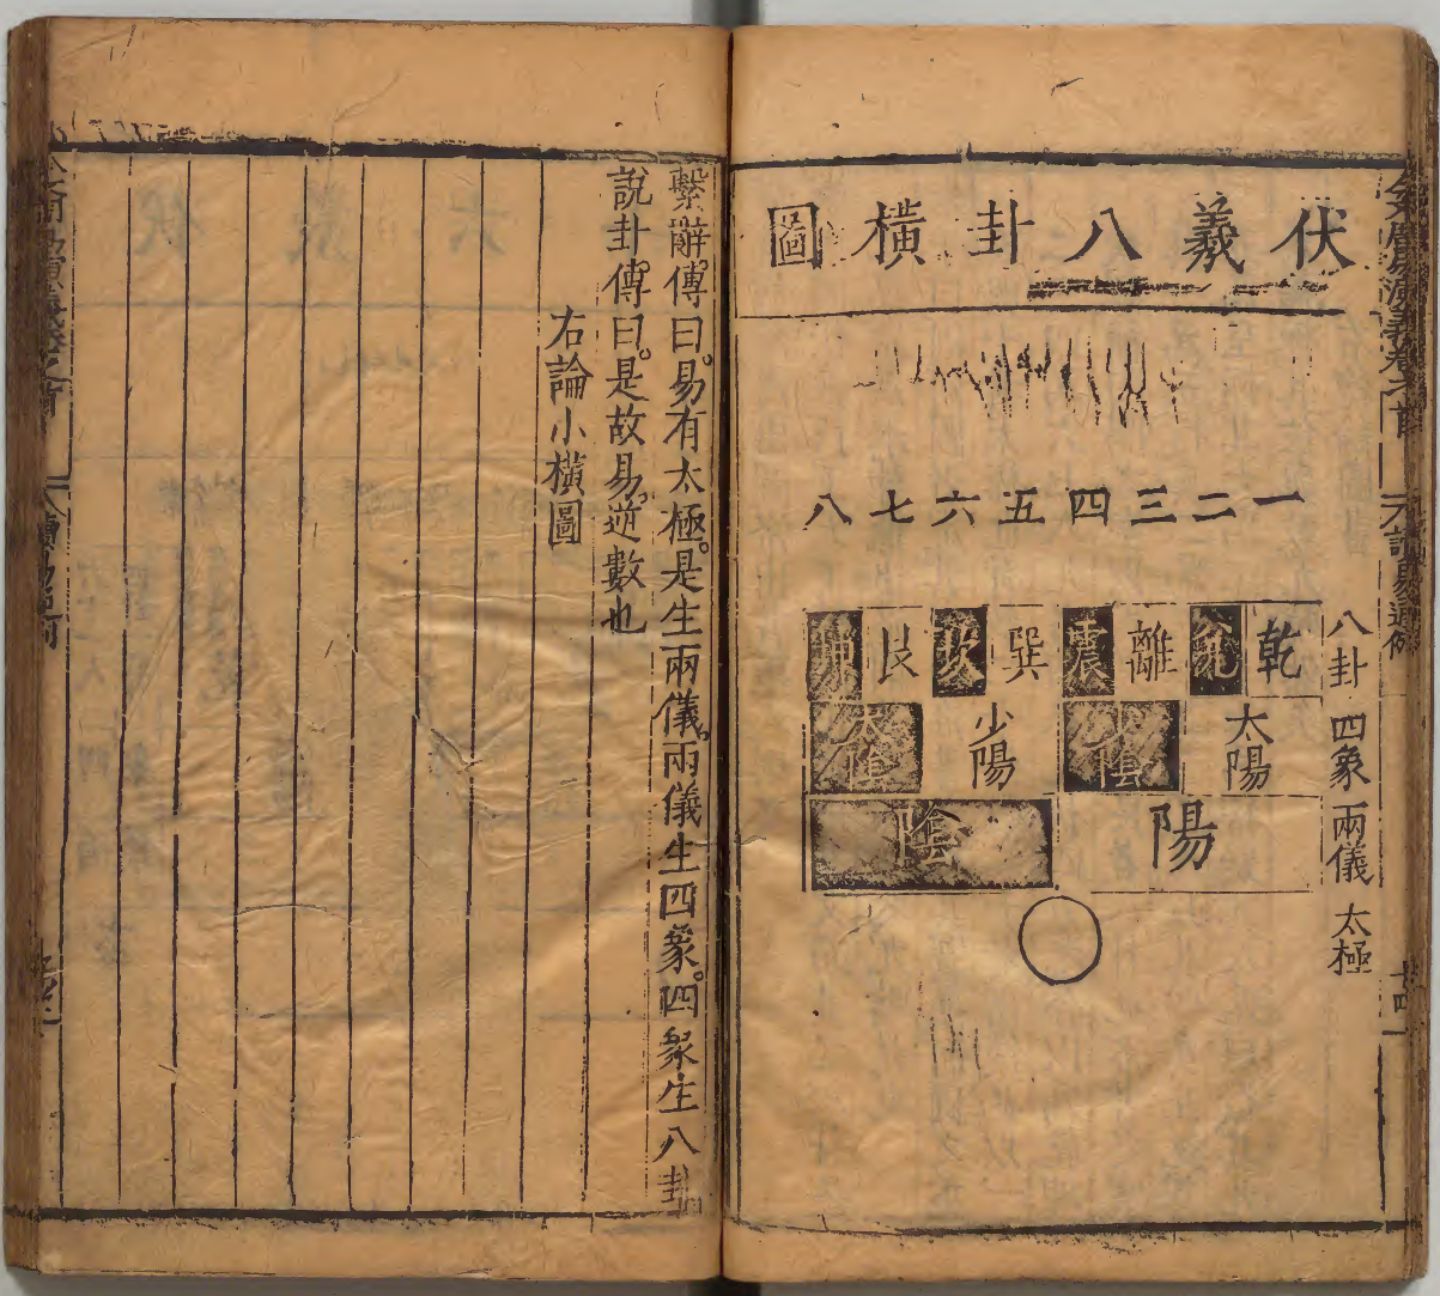 伏羲八卦橫圖
一二三四五六七八
八卦 四象 兩儀 太極
乾兌離震巽坎艮坤
太陽 少陰 少陽 太陰
陽 陰
繫辭傳曰。易有太極。是生兩儀。兩儀生四象。四象生八卦
說卦傳曰。是故易。逆數也
右論小橫圖
周易演義卷之首
讀易通例
廿四